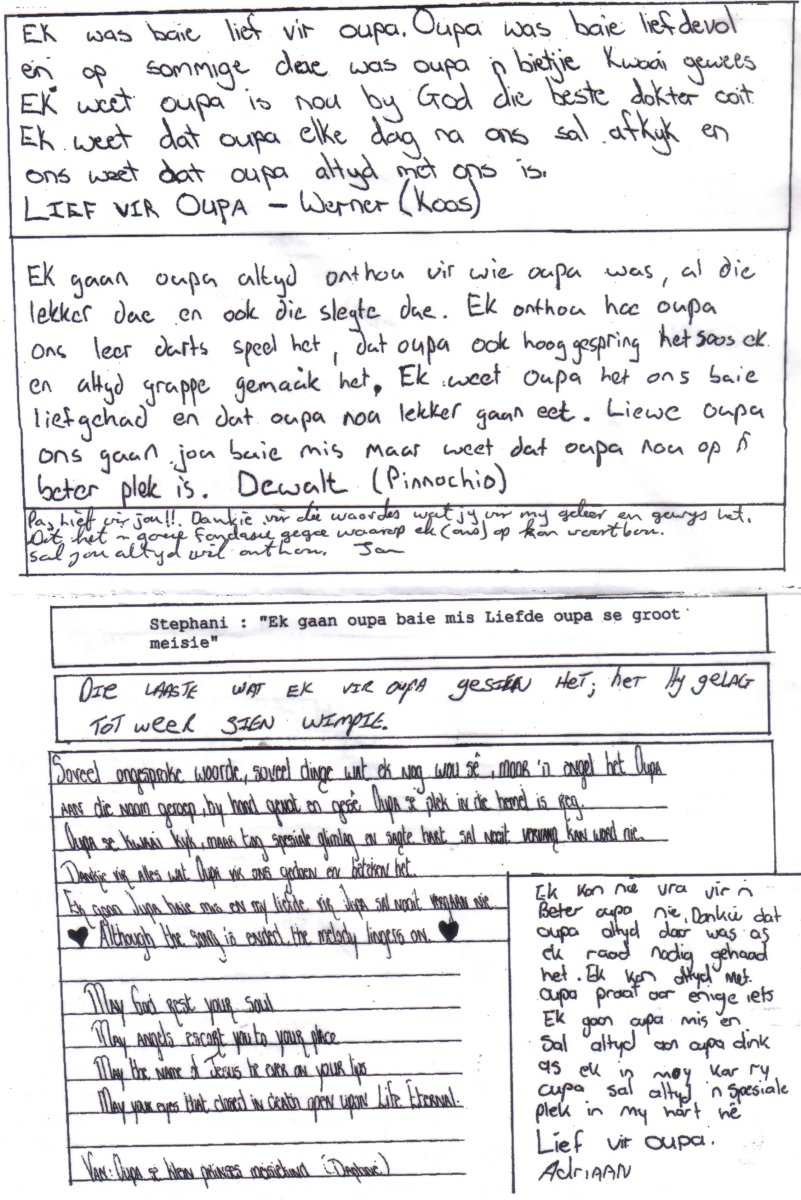 Ek was baie lief vir oupa. Oupa was baie liefdevol
en op sommige dae was oupa 'n bietjie kwaai gewees
Ek weet oupa is nou by God die beste dokter ooit.
Ek weet dat oupa elke dag na ons sal afkyk en
ons weet dat oupa altyd met ons is.
LIEF VIR OUPA – Werner (Koos)
Ek gaan oupa altyd onthou vir wie oupa was, al die
lekker dae en ook die slegte dae. Ek onthou hoe oupa
ons leer darts speel het, dat oupa ook hoog gespring het soos ek
en altyd grappe gemaak het. Ek weet oupa het ons baie
liefgehad en dat oupa nou lekker gaan eet. Liewe oupa
ons gaan jou baie mis maar weet dat oupa nou op 'n
beter plek is. Dewalt (Pinnochio)
Pa, Lief vir jou!!. Dankie vir die waardes wat jy vir my geleer en gewys het.
Dit het 'n goeie fondasie gegee waarop ek (ons) op kan voortbou.
sal jou altyd wil onthou. Jan
Stephani : "Ek gaan oupa baie mis Liefde oupa se groot
meisie"
DIE LAASTE WAT EK VIR OUPA GESIEN HET; HET HY GELAG
TOT WEER SIEN WIMPIE.
Soveel ongesproke woorde, soveel dinge wat ek nog wou sê, maar 'n engel het Oupa
aan die naam geroep, by hand gevat en gesê Oupa se plek in die hemel is reg.
Oupa se kwaai kyk, maar tog spesiale glimlag en sagte hart sal nooit vervang kan word nie.
Dankie vir alles wat Oupa vir ons gedoen en beteken het.
Ek gaan Oupa baie mis en my liefde vir Oupa sal nooit vergaan nie.
♥ Although the song is ended, the melody lingers on. ♥
May God rest your soul
May angels escort you to your place
May the name of Jesus be ever on your lips
May your eyes that closed in death open upon Life Eternal.
Van: Oupa se klein prinses meisiekind (Daphne)
Ek kon nie vra vir 'n
Beter oupa nie. Dankie dat
oupa altyd daar was as
ek raad nodig gehaad
het. Ek kon altyd met
oupa praat oor enige iets
Ek gaan oupa mis en
Sal altyd aan oupa dink
as ek in my kar ry
oupa sal altyd 'n spesiale
plek in my hart hê
Lief vir oupa.
ADRIAAN